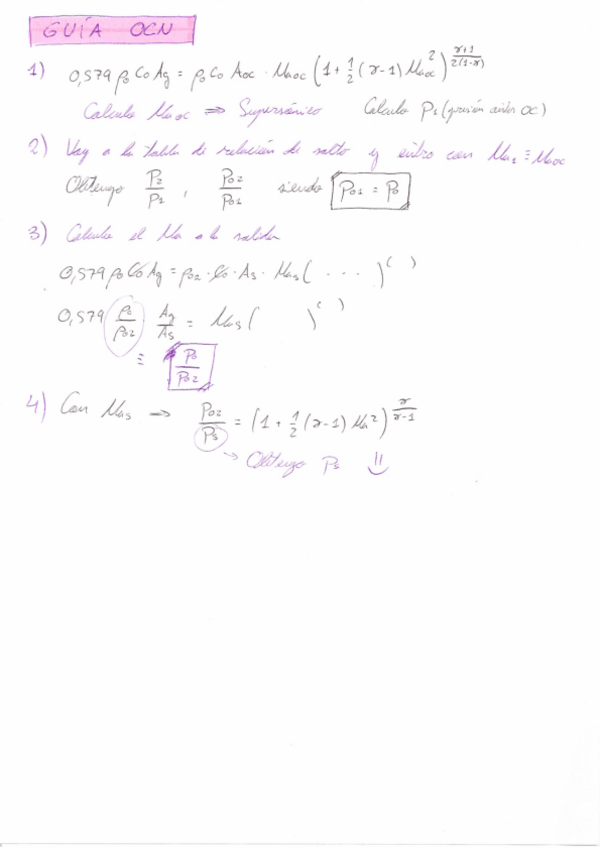 GUÍA OCN
1) 0,579 ρ₀ C₀ Ag = ρ₀ C₀ Aoc · Maoc (1 + 1/2 (γ-1) Maoc²)^(γ+1)/(2(1-γ))
Calculo Maoc ⇒ Supersónico Calculo P₁ (presión antes OC)
2) Voy a la tabla de relación de salto y entro con Ma₁ ≡ Maoc
Obtengo P₂/P₁ , P₀₂/P₀₁ siendo P₀₁ = P₀
3) Calculo el Ma a la salida
0,579 ρ₀ C₀ Ag = ρ₀₂ · C₀ · As · Mas ( . . . )^( )
0,579 ρ₀/ρ₀₂ Ag/As = Mas ( )^( )
≡ P₀/P₀₂
4) Con Mas → P₀₂/Ps = (1 + 1/2 (γ-1) Ma²)^γ/(γ-1)
→ Obtengo Ps